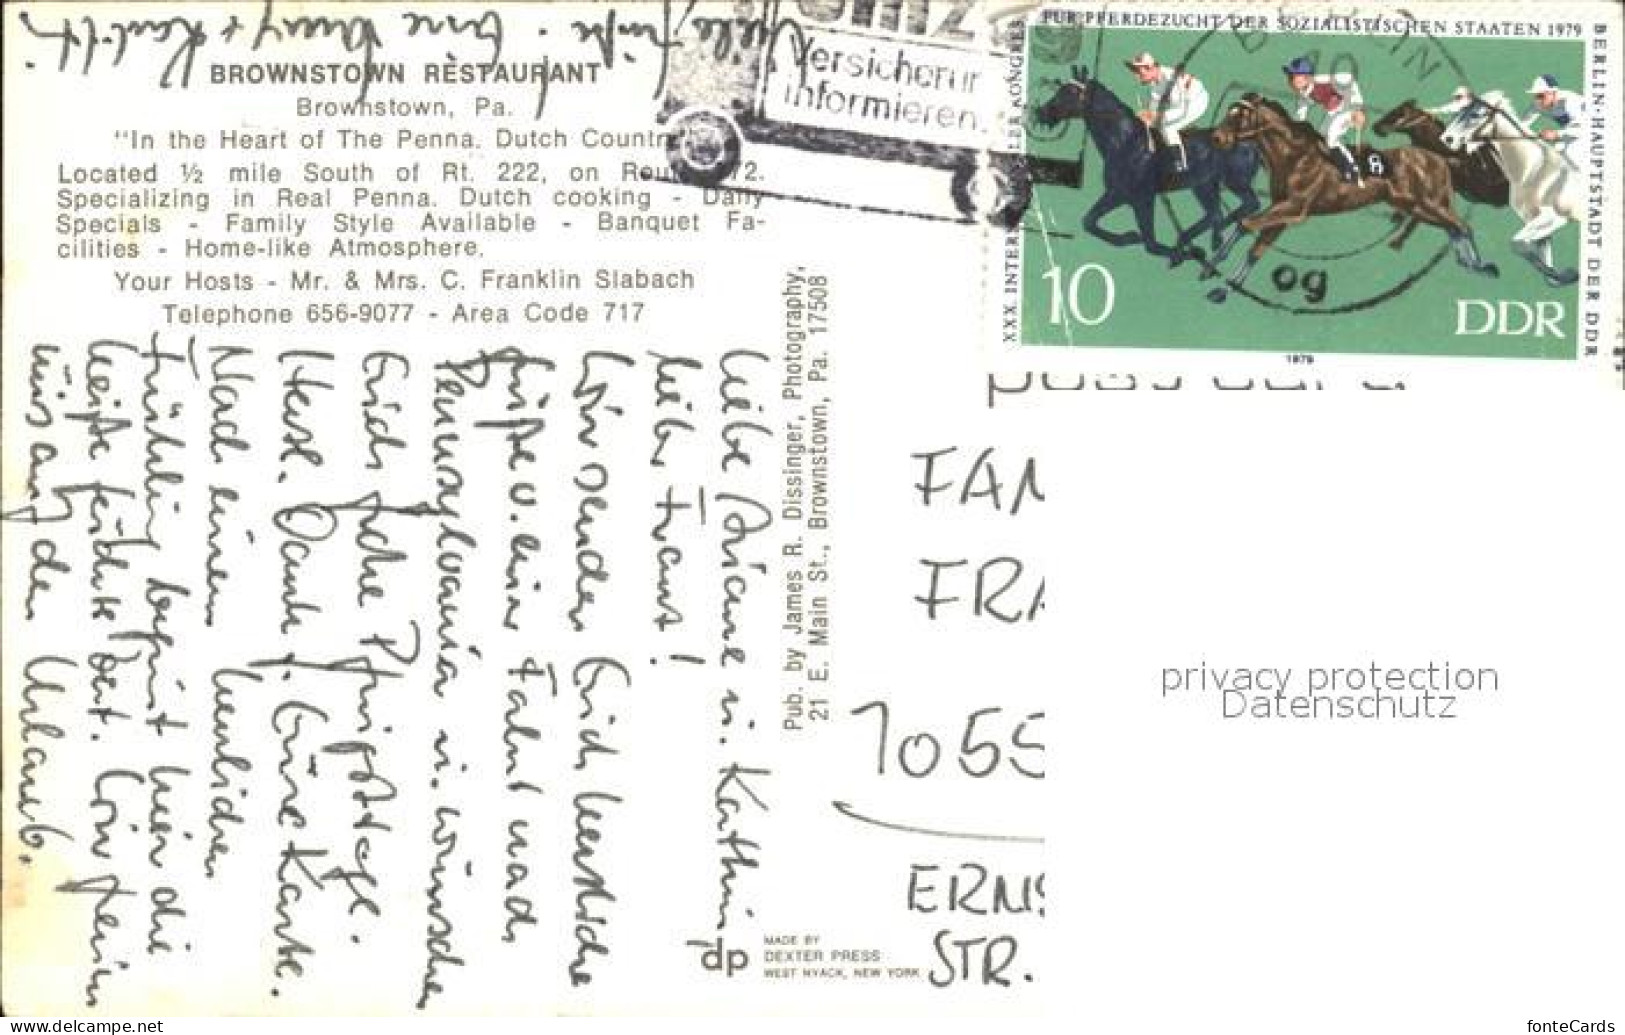 BROWNSTOWN RESTAURANT
Brownstown, Pa.
"In the Heart of The Penna. Dutch Countr
Located ½ mile South of Rt. 222, on Rou 72.
Specializing in Real Penna. Dutch cooking - Daily
Specials - Family Style Available - Banquet Fa-
cilities - Home-like Atmosphere.
Your Hosts - Mr. & Mrs. C. Franklin Slabach
Telephone 656-9077 - Area Code 717
Viele Grüße
Liebe Ariane u. Kathrin,
lieber Franz!
Wir senden Euch herzliche
Grüße v. einer Fahrt nach
Pennsylvania u. wünschen
Euch frohe Pfingsttage.
Herzl. Dank f. Eure Karte.
Nach einem
Frühling beginnt hier die
heiße feuchte Zeit. Wir freuen
uns auf den Urlaub.
Pub. by James R. Dissinger, Photography,
21 E. Main St., Brownstown, Pa. 17508
dp
MADE BY
DEXTER PRESS
WEST NYACK, NEW YORK
Versicherun
informieren.
XXX. INTER KONGRESS
FÜR PFERDEZUCHT DER SOZIALISTISCHEN STAATEN 1979
BERLIN·HAUPTSTADT DER DDR
8
10
DDR
1979
BERLIN
10
og
FAM
FRA
1055
ERNS
STR.
privacy protection
Datenschutz
www.delcampe.net
fonteCards